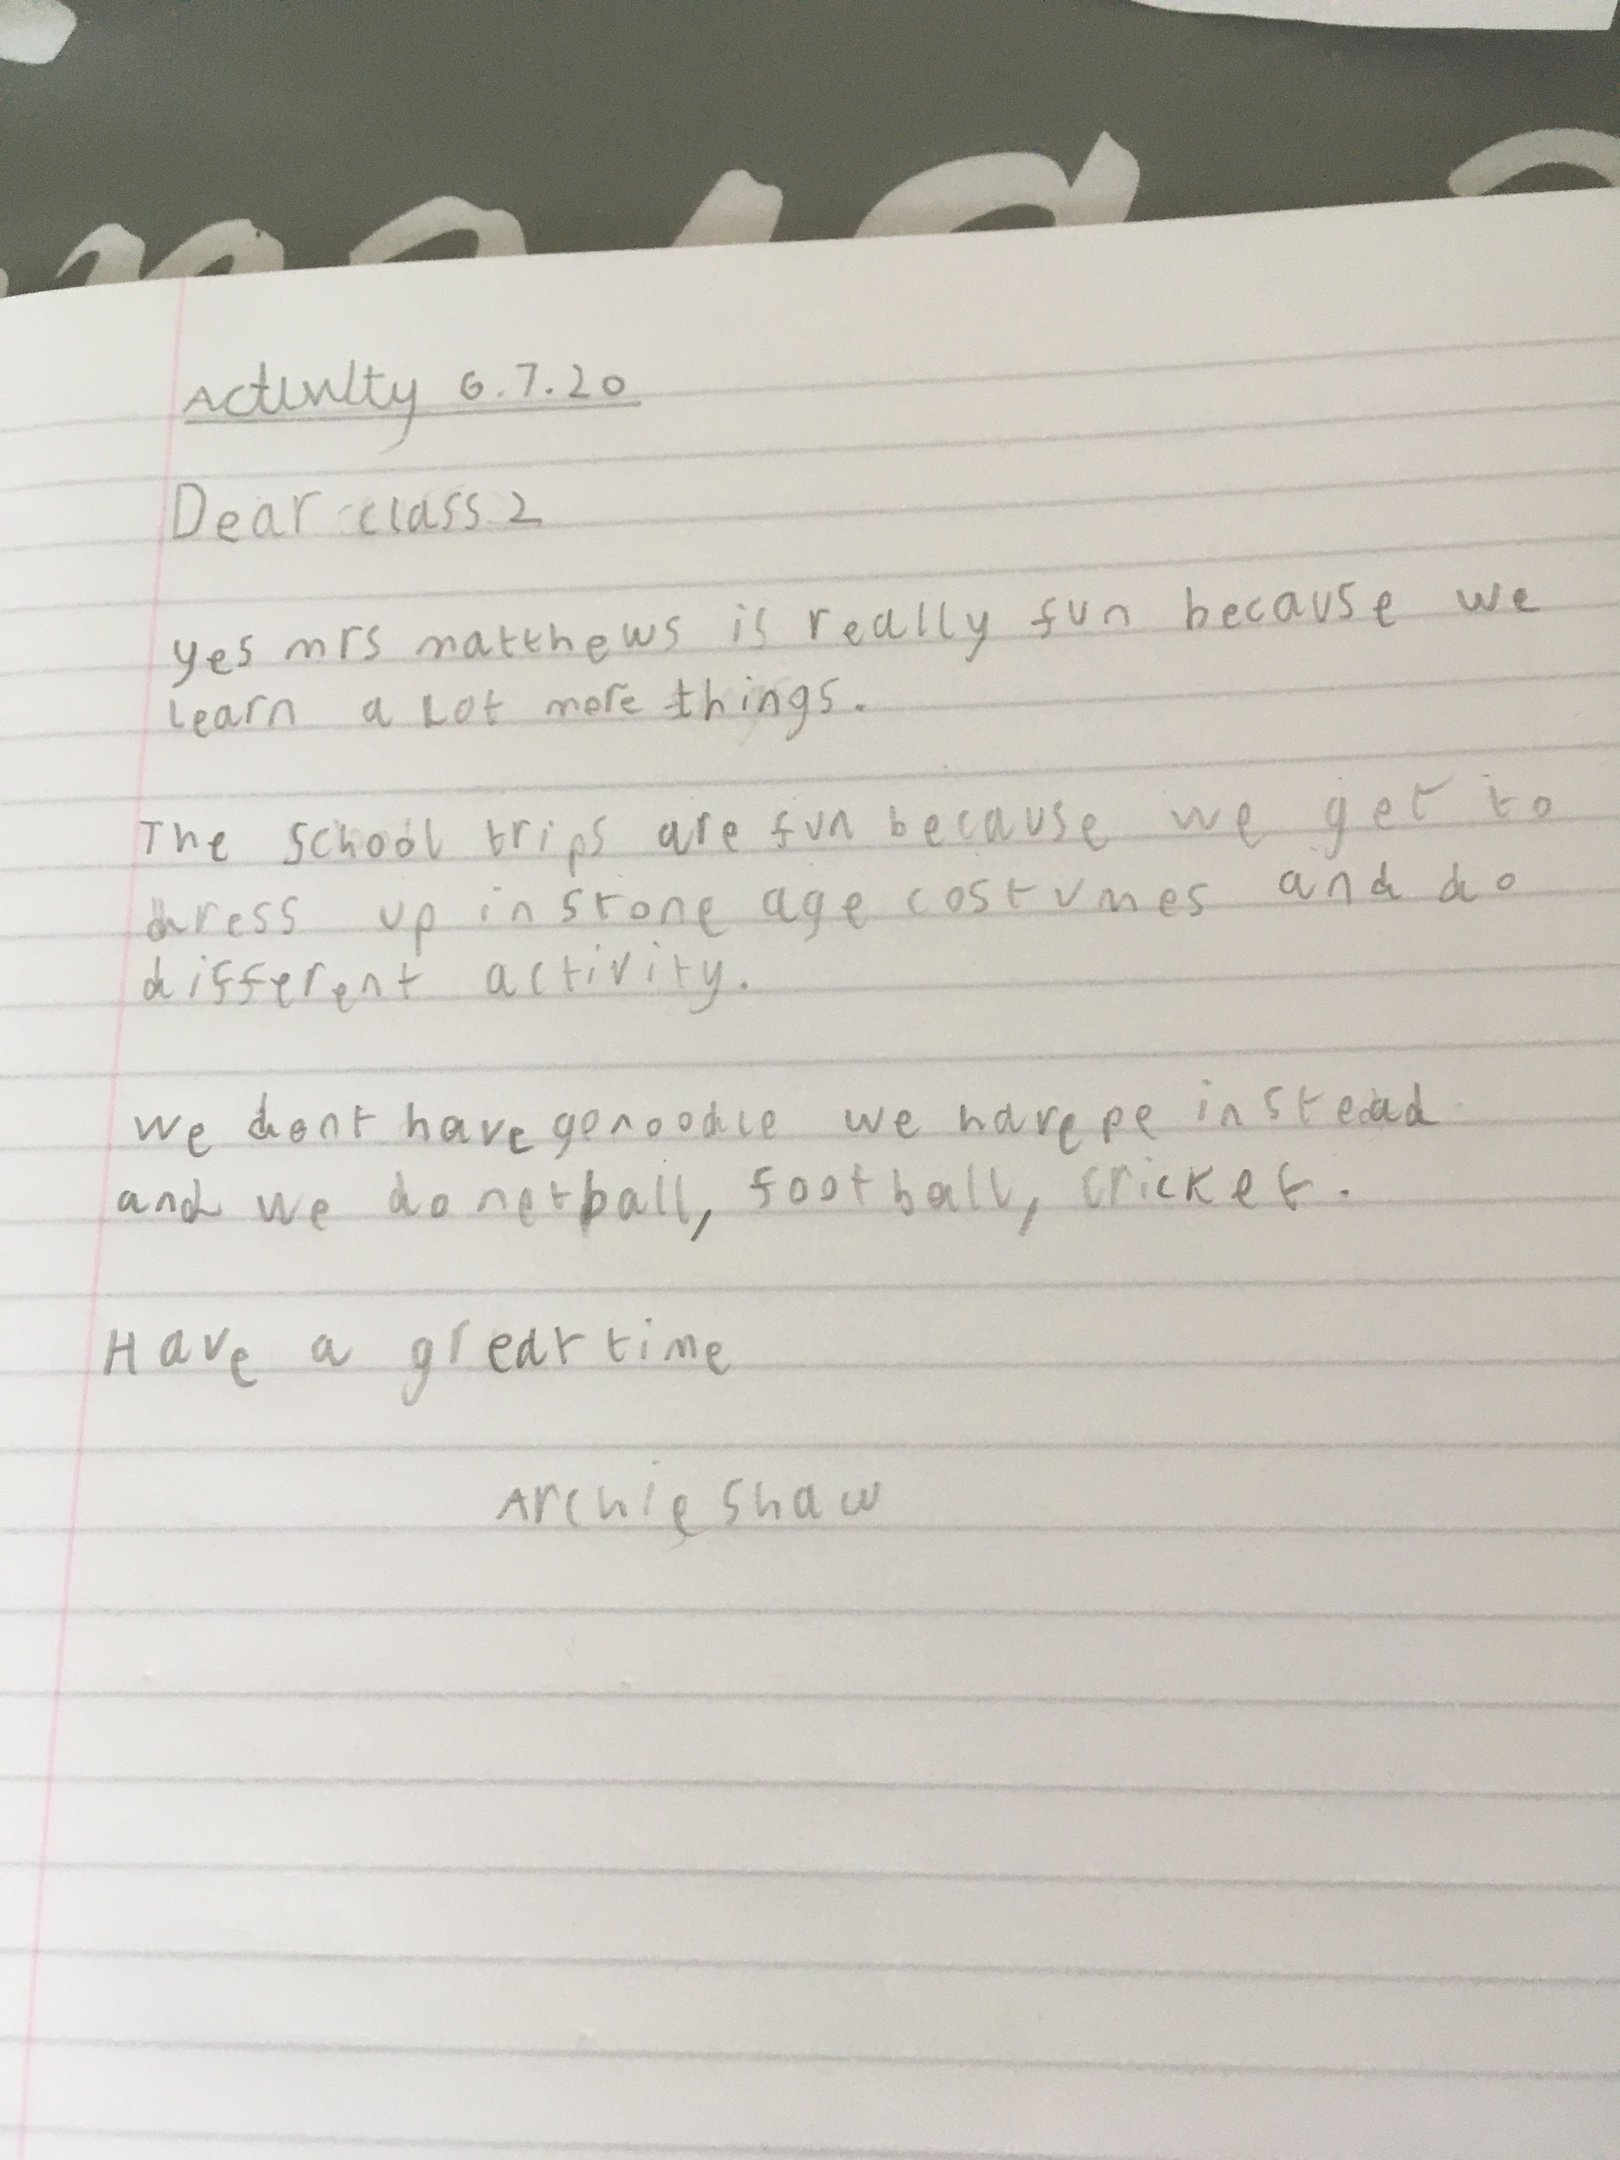 Activity 6.7.20
Dear class 2
yes mrs matthews is really fun because we
learn a Lot more things.
The school trips are fun because we get to
dress up in stone age costumes and do
different activity.
we dont have gonoodle we have pe instead
and we do netball, football, cricket.
Have a great time
Archie shaw